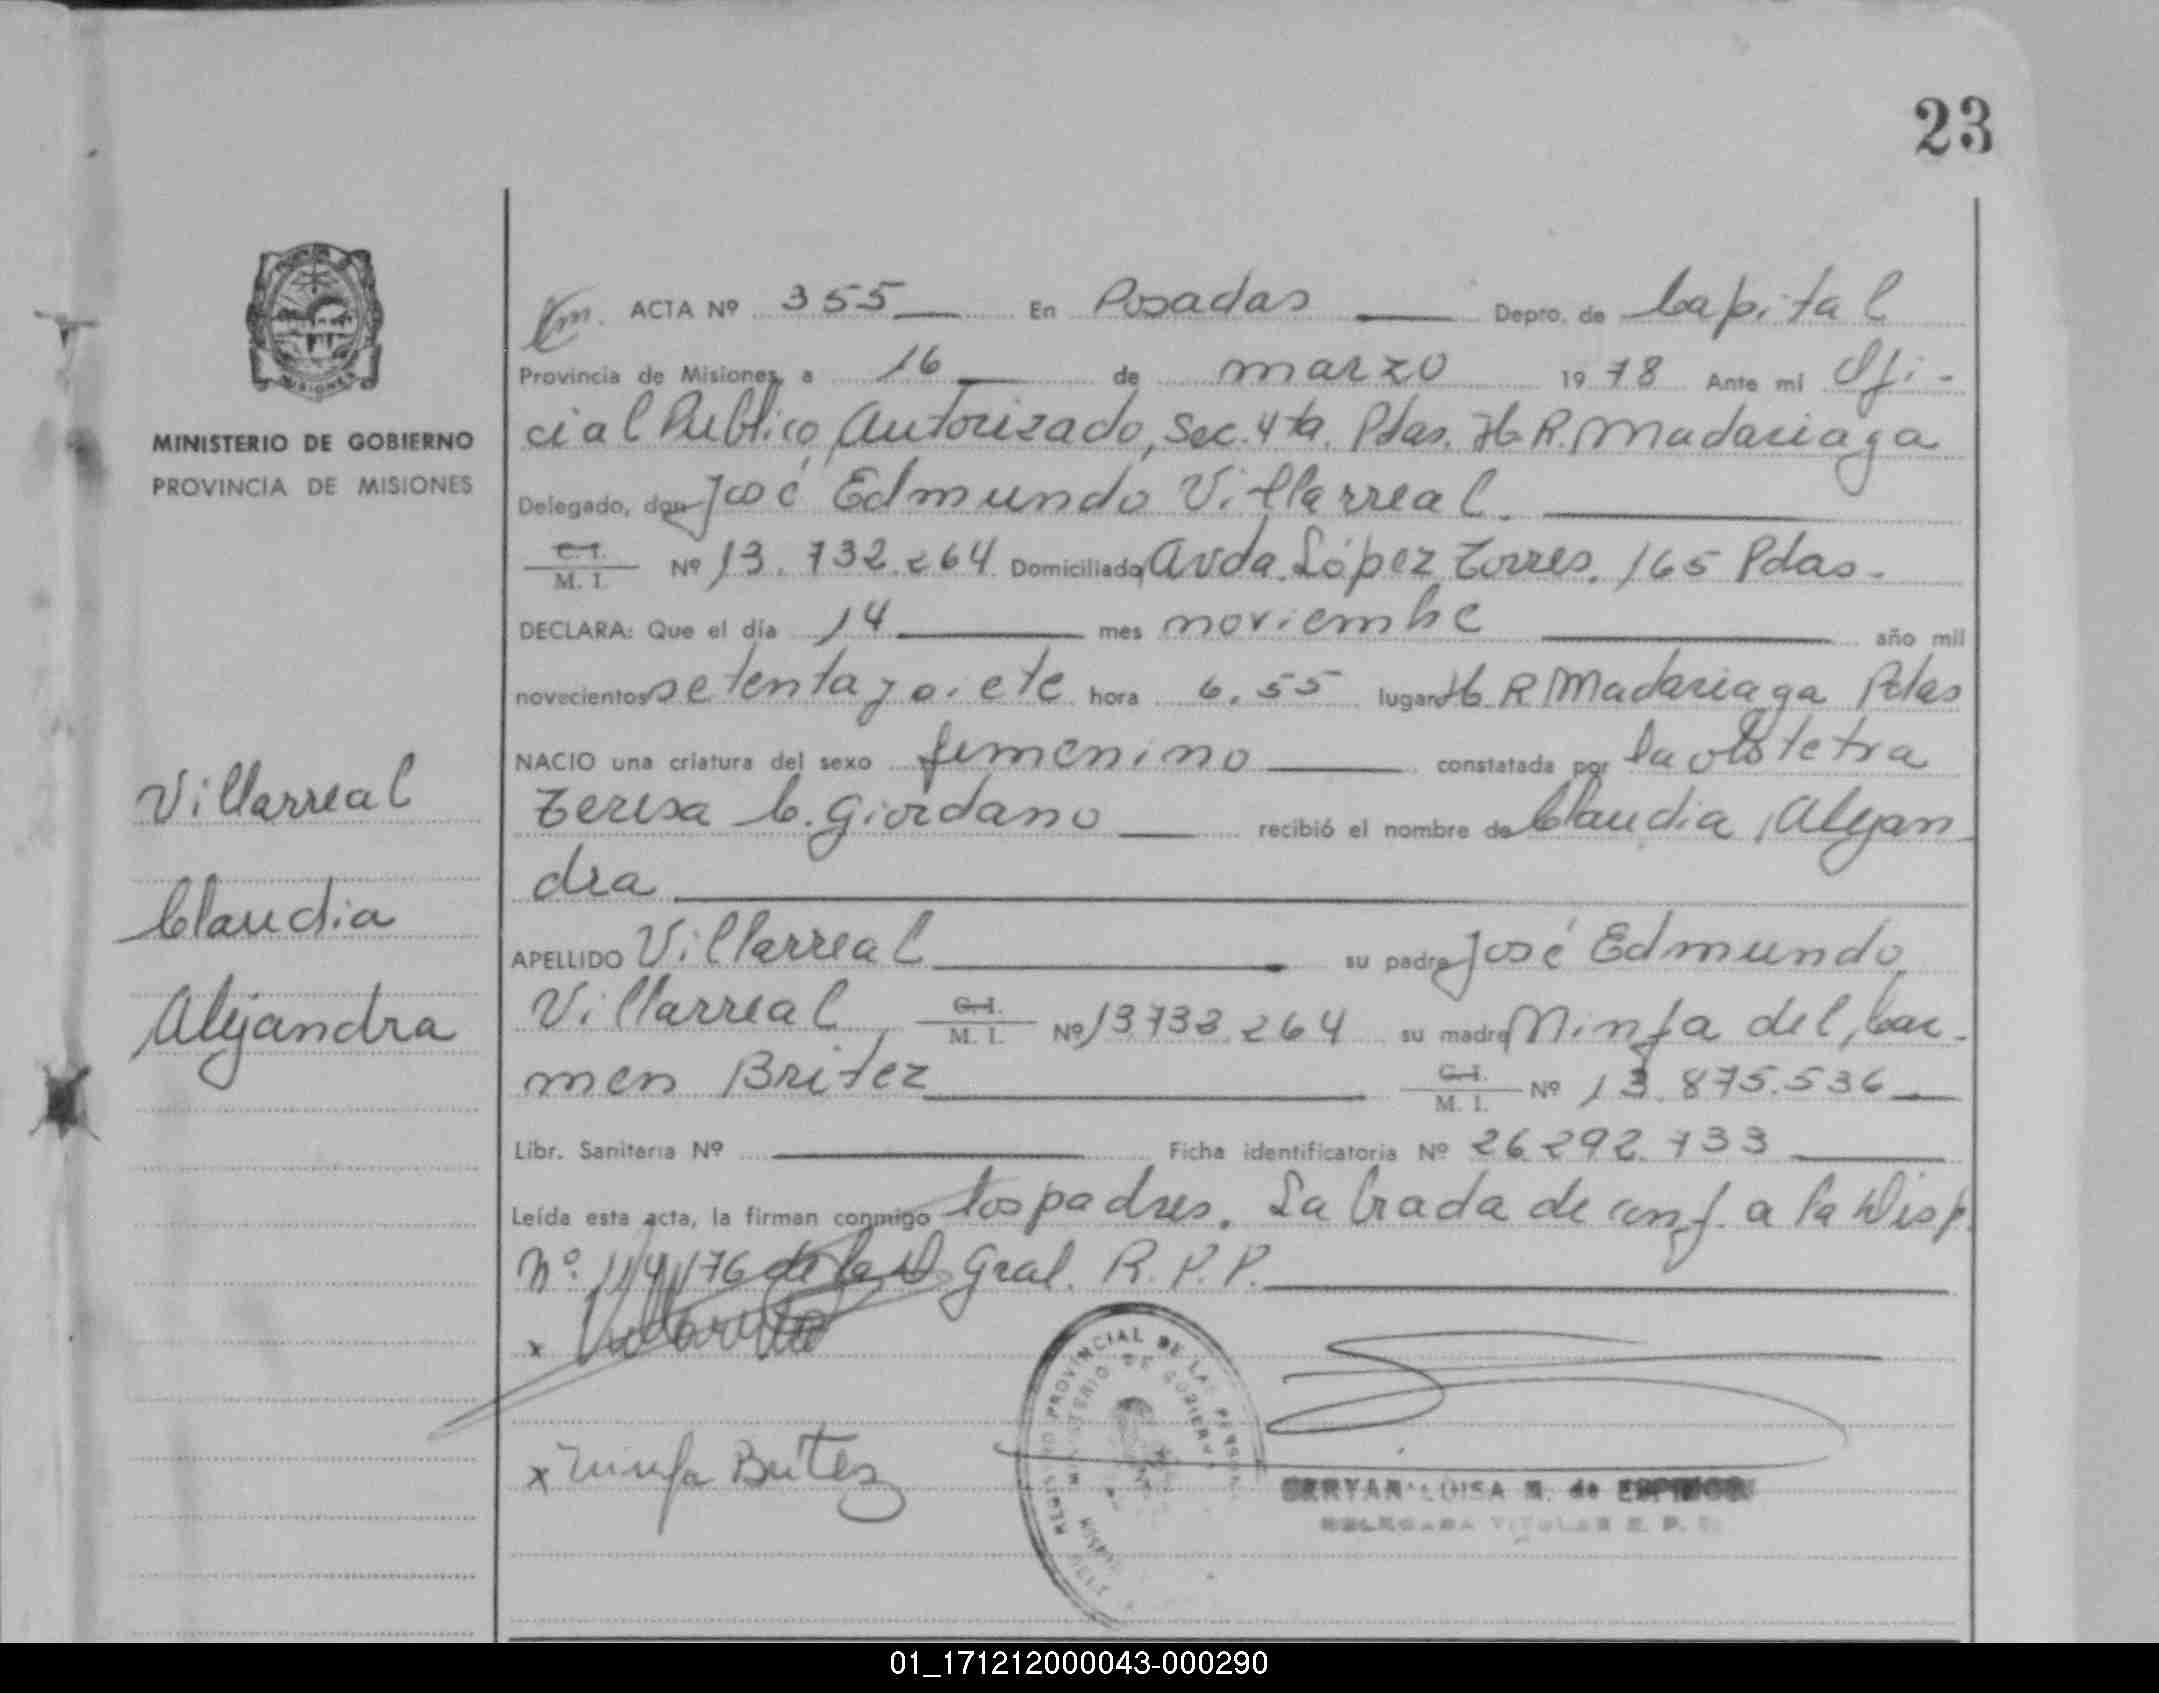 23
MINISTERIO DE GOBIERNO
PROVINCIA DE MISIONES
Villarreal
Claudia
Alejandra
ACTA Nº 355 En Posadas Depto. de Capital
Provincia de Misiones, a 16 de marzo 1978 Ante mí Ofi-
cial Publico Autorizado, Sec. 4ta. Pdas. H. R. Madariaga
Delegado, don José Edmundo Villarreal.
C. I.
M. I. Nº 13.732.264 Domiciliado Avda. López Torres. 165 Pdas.
DECLARA: Que el día 14 mes noviembre año mil
novecientos setenta y siete hora 6.55 lugar H. R Madariaga Pdas
NACIO una criatura del sexo femenino constatada por la obstetra
Teresa C. Giordano recibió el nombre de Claudia Alejan
dra
APELLIDO Villarreal su padre José Edmundo
Villarreal C. I.
M. I. Nº 13.732.264 su madre Ninfa del Car-
men Britez C. I.
M. I. Nº 13.875.536
Libr. Sanitaria Nº Ficha identificatoria Nº 26.292.733
Leída esta acta, la firman conmigo los padres. Labrada de conf. a la Disp.
Nº. 114/76 de la D. Gral. R. P. P.
x
x Ninfa Britez
PROVINCIAL DE LAS
MINISTERIO DE GOBIERNO
LUISA
de
01_171212000043-000290